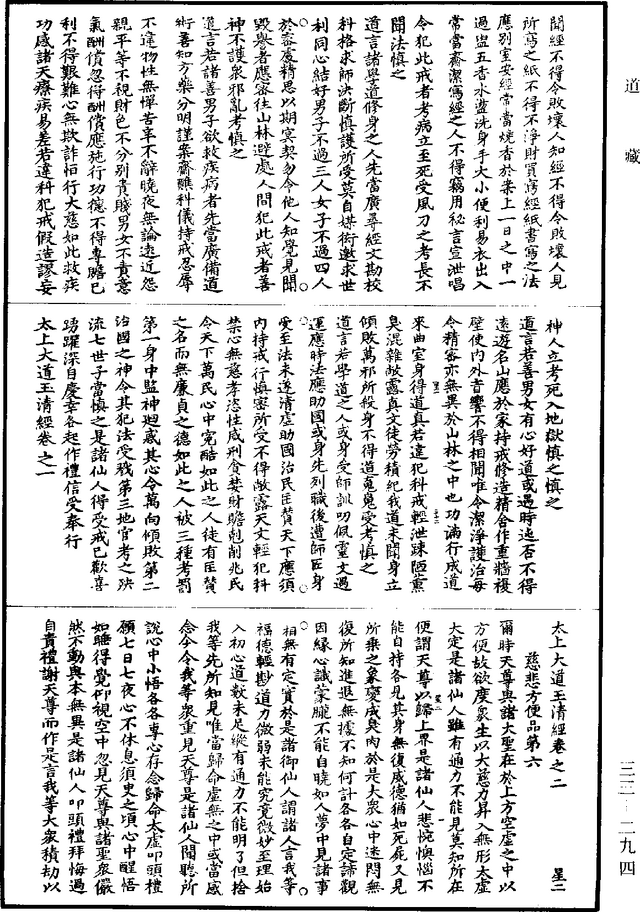 道藏
聞經不得令敗壞人知經不得令敗壞人見
所寫之紙不得不淨財買寫經紙書寫之法
應別室安經常當燒香於案上一日之中一
過盥五香水盪洗身手大小便利易衣出入
常當齋潔寫經之人不得竊用秘言宣泄唱
令犯此戒者考病立至死受風刀之考長不
聞法慎之
道言諸學道修身之人先當廣尋經文勘校
科格求師決斷慎護所受莫自媒衒邀求世
利同心結好男子不過三人女子不過四人
於密處精思以期冥契勿令他人知覺見聞
毀譽者應密往山林避處人間犯此戒者善
神不護衆邪亂考慎之
道言若諸善男子欲救疾病者先當廣備道
術善知方藥分明謹案齋醮科儀持戒忍辱
不違物性無憚苦辛不辭曉夜無論遠近怨
親平等不視財色不分別貴賤男女不責意
氣酬償忽得酬償應施行功德不得專贍已
利不得艱難心無欺詐恒行大慈如此救疾
功感諸天療疾易差若違科犯戒假造謬妄
神人立考死入地獄慎之慎之
道言若善男女有心好道或遇時逃否不得
遠遊名山應於家持戒修造精舍作重牆複
壁使內外音響不得相聞唯令潔淨護治每
令精密亦無異於山林之中也功滿行成道
來曲室身得道真若違犯科戒輕泄踈陋薰
臭混雜敢露真文徒勞積紀我道未聞身立
傾敗萬邪所殺身不得道冤魂受考慎之
道言若學道之人或身受師訓叨佩靈文遇
運應時法應助國或身先列職後遭師匠身
受至法未遂清虛助國治民匡贊天下應須
內持戒行慎密所受不得敢露天文輕犯科
禁心無慈孝恣性威刑貪婪財贍剋削兆民
令天下萬民心中寃酷如此之人徒有匡贊
之名而無廉貞之德如此之人被三種考罰
第一身中監神迴惑其心令萬向傾敗第二
治國之神令其犯法受戮第三地官考之殃
流七世子當慎之是諸仙人得受戒已歡喜
踴躍深自慶幸各起作禮信受奉行
太上大道玉清經卷之一
太上大道玉清經卷之二 星二
慈悲方便品第六
爾時天尊與諸大聖在於上方空虛之中以
方便故欲度衆生以大慈力昇入無形太虛
大定是諸仙人雖有通力不能見莫知所在
便謂天尊以歸上界是諸仙人悲惋懊惱不
能自持各見其身無復威德猶如死屍又見
所乘之象變成臭肉於是大衆心中迷悶無
復所知進退無據不知何計各各自定諦觀
因緣心識蒙朧不能自曉如人夢中見諸事
相無有定實於是諸御仙人謂諸人言我等
福德輕尠道力微弱未能究竟微妙至理始
入初心道數未足縱有通力不能明了但捨
我等先所知見唯當歸命虛無之中或當感
念今令我等衆重見天尊是諸仙人聞聽所
說心中小悟各各專心存念歸命太虛叩頭禮
願七日七夜心不休息須臾之頃心中醒悟
如睡得覺仰視空中忽見天尊與諸聖衆儼
然不動與本無異是諸仙人叩頭禮拜悔過
自責禮謝天尊而作是言我等大衆積劫以
三三—二九四